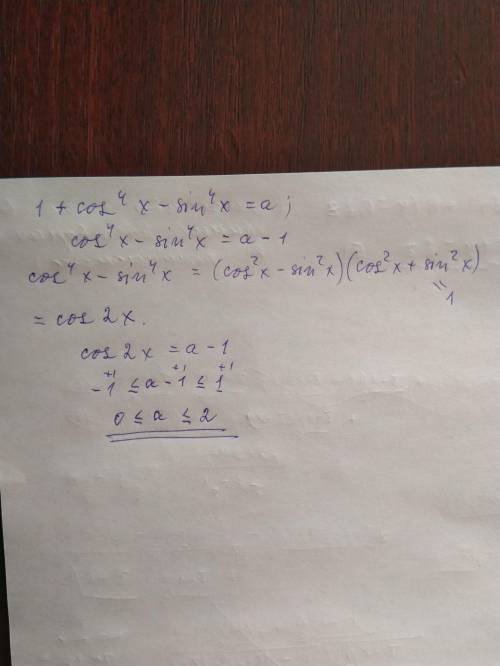 1 + cos⁴ x - sin⁴x = a;
cos⁴x - sin⁴x = a - 1
cos⁴x - sin⁴x = (cos²x - sin²x)(cos²x + sin²x)
" 1
= cos 2x.
cos 2x = a - 1
+1 +1 +1
-1 ≤ a - 1 ≤ 1
0 ≤ a ≤ 2